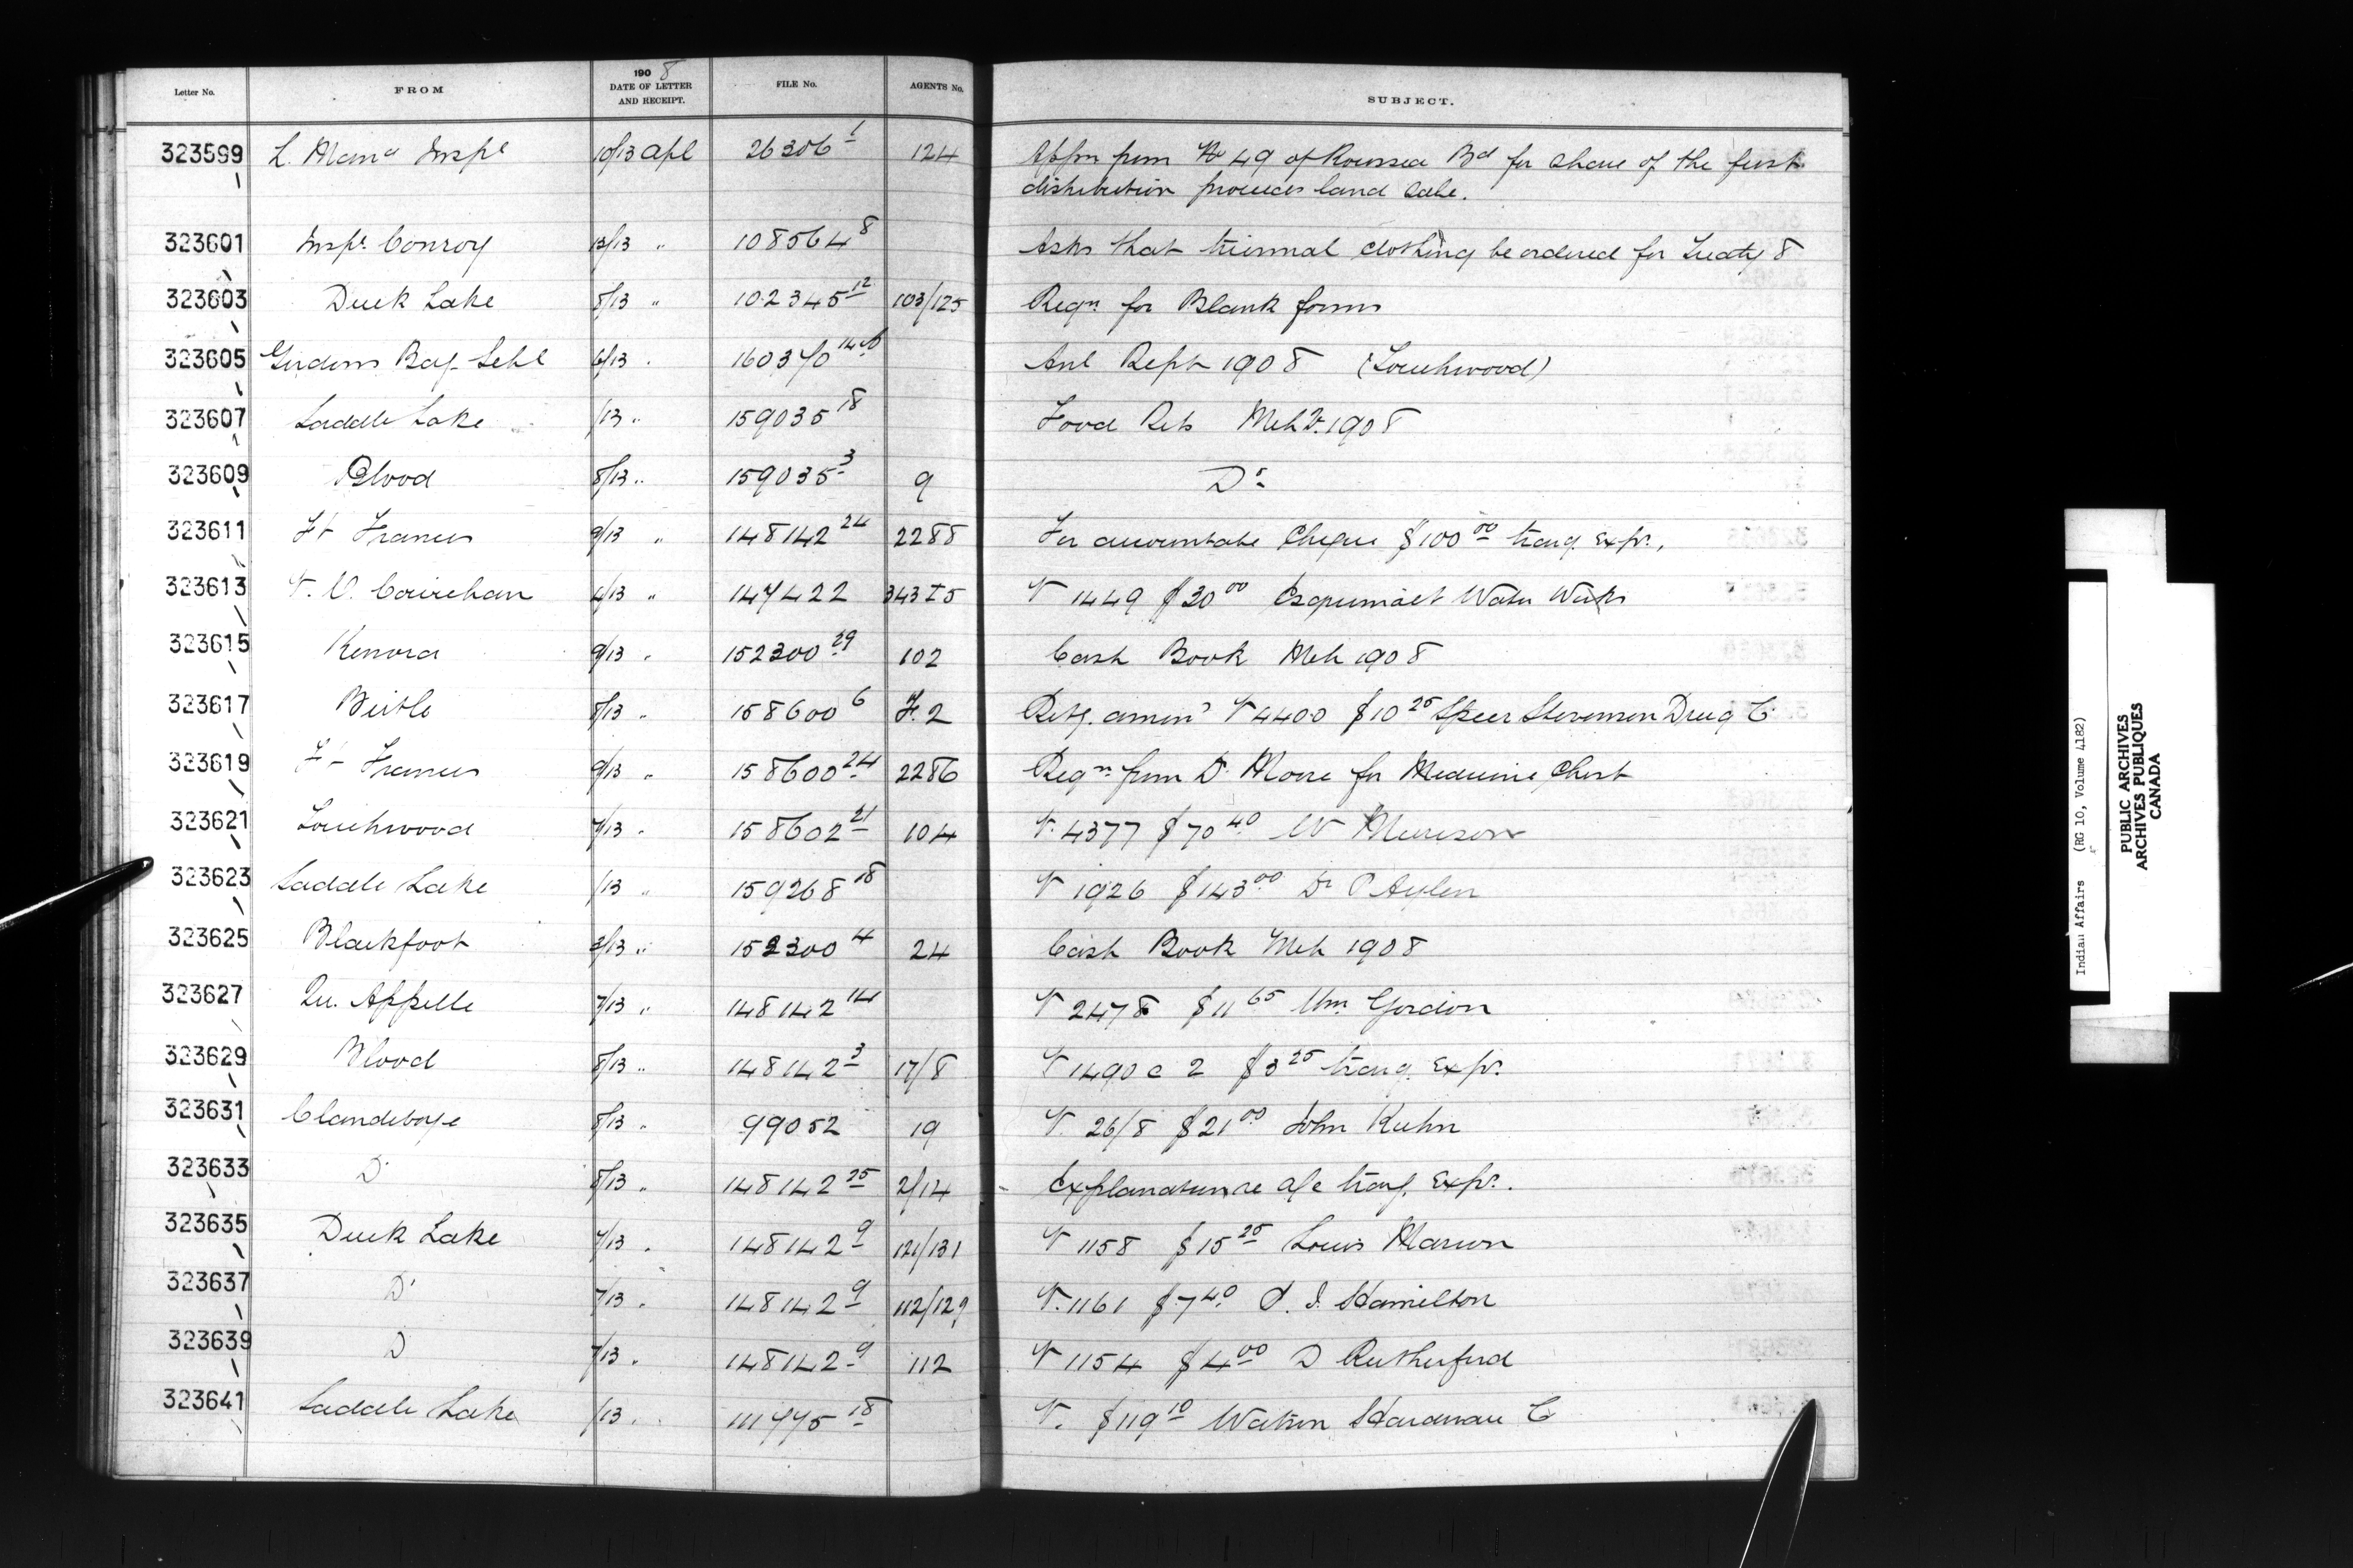 1908
Letter No. FROM DATE OF LETTER AND RECEIPT. FILE No. AGENTS No. SUBJECT.
323599 L. Mana Inspe 10/13 Apl 26306 1 124 Appln from No 49 of Roussea Bd for share of the first
distribution proceeds land sale.
323601 Inspr Conroy 13/13 " 108564 8 Asks that triennial clothing be ordered for Treaty 8
323603 Duck Lake 8/13 " 102345 12 103/125 Reqn for Blank forms
323605 Gordons Bdg Schl 6/13 " Anl Rept 1908 (Touchwood)
323607 Saddle Lake /13 " 159035 18 Food Rets Mch 1908
323609 Blood 8/13 " 159035 3 9 Do
323611 Ft Frances 9/13 " 148142 24 2288 For accountable Cheque $100 00 trav. Exps.
323613 V. Cowichan 4/13 " 147422 343 I 5 V 1449 $30 00 Esquimalt Water Works
323615 Kenora 9/13 " 152300 29 102 Cash Book Mch 1908
323617 Birtle 8/13 " 158600 6 F. 2 Retg. amend V 4400 $10 25 Speer Stevenson Drug Co
323619 Ft Frances 9/13 " 158600 24 2286 Reqn from Dr Moore for Medicine Chest
323621 Touchwood 7/13 " 158602 21 104 V. 4377 $70 40 W Murison
323623 Saddle Lake /13 " 159268 18 V 1926 $143 00 Dr P Aylen
323625 Blackfoot 3/13 " 152300 4 24 Cash Book Mch 1908
323627 Qu. Appelle 7/13 " 148142 14 V 2478 $11 65 Wm Gordon
323629 Blood 8/13 " 148142 3 17/8 V 1490 c 2 $3 25 trav. Exps.
323631 Clandeboye 8/13 " 99052 19 V. 26/8 $21 00 John Kuhn
323633 Do 8/13 " 148142 25 2/14 Explanation re a/c trav. Exps.
323635 Duck Lake 7/13 " 148142 9 121/131 V 1158 $15 25 Louis Marion
323637 Do 7/13 " 148142 9 112/129 V. 1161 $7 40 Hamilton
323639 D 7/13 " 148142 9 112 V 1154 $4 00 D Rutherford
323641 Saddle Lake /13 " 111775 18 V. $119 10 Watson Hardware Co
Indian Affairs (RG 10, Volume 4182)
PUBLIC ARCHIVES
ARCHIVES PUBLIQUES
CANADA